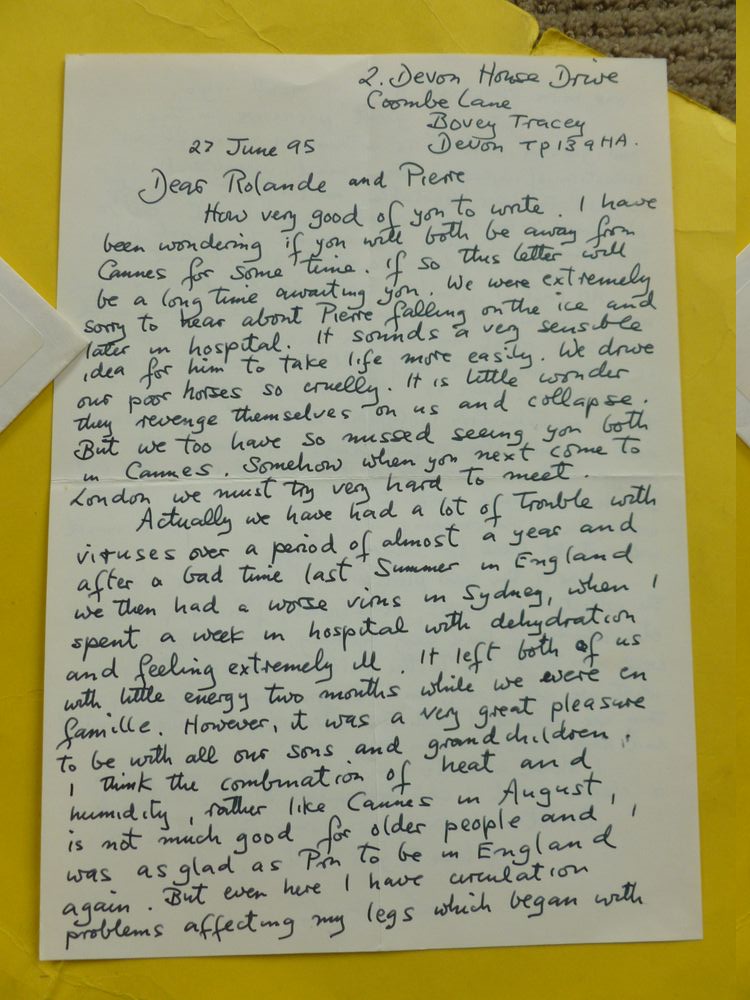 2. Devon House Drive
Coombe Lane
Bovey Tracey
27 June 95
Devon TP13 9HA.
Dear Rolande and Pierre
How very good of you to write. I have
been wondering if you will both be away from
Cannes for some time. If so this letter will
be a long time awaiting you. We were extremely
sorry to hear about Pierre falling on the ice and
later in hospital. It sounds a very sensible
idea for him to take life more easily. We drive
our poor horses so cruelly. It is little wonder
they revenge themselves on us and collapse.
But we too have so missed seeing you both
in Cannes. Somehow when you next come to
London we must try very hard to meet.
Actually we have had a lot of Trouble with
viruses over a period of almost a year and
after a bad time last Summer in England
we then had a worse virus in Sydney, when I
spent a week in hospital with dehydration
and feeling extremely ill. It left both of us
with little energy two months while we were en
famille. However, it was a very great pleasure
to be with all our sons and grandchildren.
I think the combination of heat and
humidity, rather like Cannes in August,
is not much good for older people and I
was as glad as Prn to be in England
again. But even here I have circulation
problems affecting my legs which began with